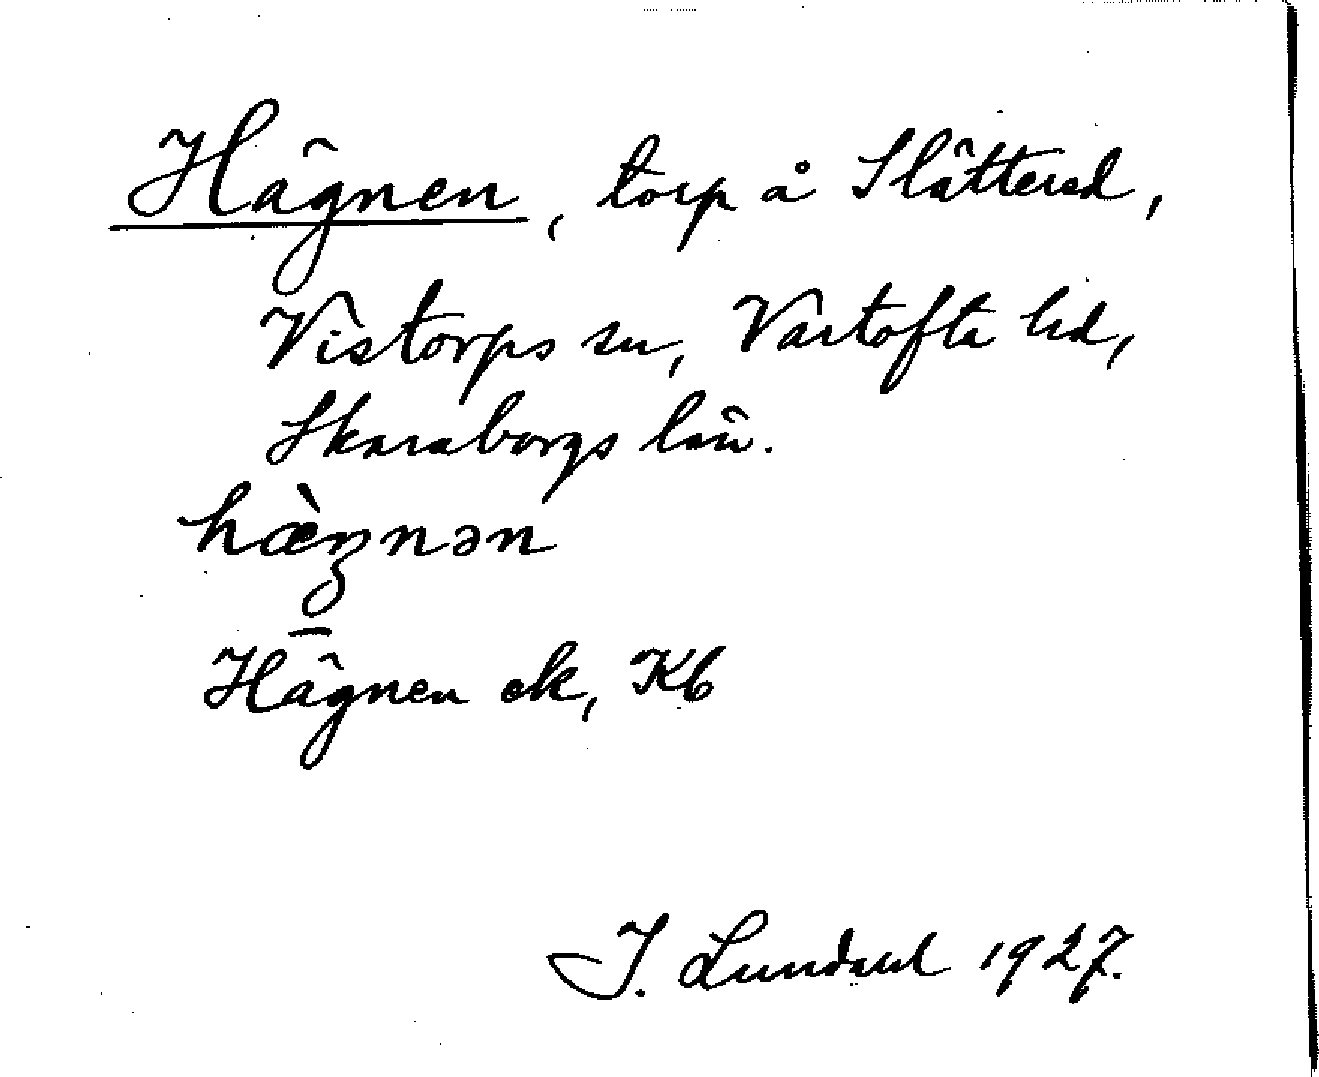 Hägnen, torp å Slättered,
Vistorps sn, Vartofta hd,
Skaraborgs län.
hæ̀ʒnən
Hägnen ek, Kb
I. Lundahl 1927.